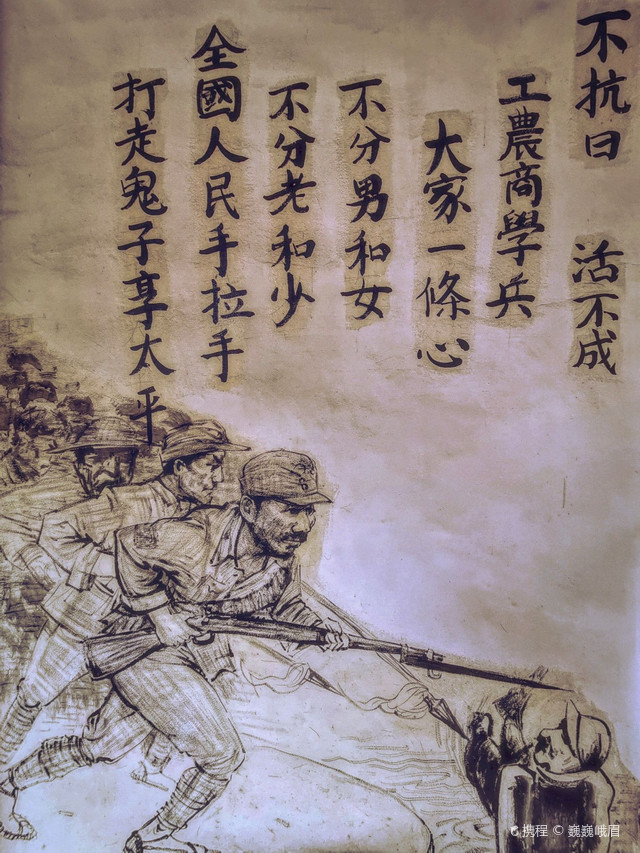 不抗日 活不成
工農商學兵
大家一條心
不分男和女
不分老和少
全國人民手拉手
打走鬼子享太平
携程 © 巍巍峨眉